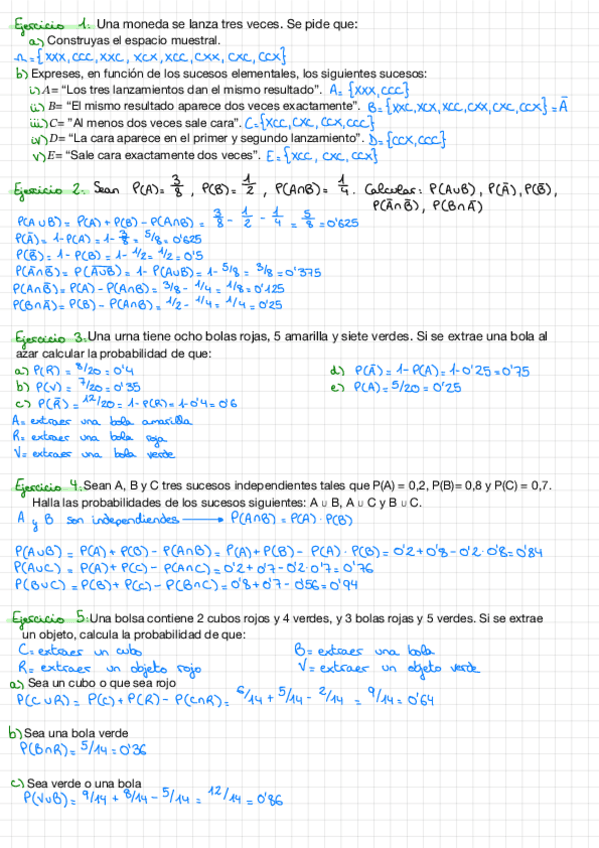 Ejercicio 1: Una moneda se lanza tres veces. Se pide que:
a) Construyas el espacio muestral.
Ω={XXX, CCC, XXC, XCX, XCC, CXX, CXC, CCX}
b) Expreses, en función de los sucesos elementales, los siguientes sucesos:
i) A= "Los tres lanzamientos dan el mismo resultado". A={XXX, CCC}
ii) B= "El mismo resultado aparece dos veces exactamente". B={XXC, XCX, XCC, CXX, CXC, CCX} = Ā
iii) C= "Al menos dos veces sale cara". C={XCC, CXC, CCX, CCC}
iv) D= "La cara aparece en el primer y segundo lanzamiento". D={CCX, CCC}
v) E= "Sale cara exactamente dos veces". E={XCC, CXC, CCX}
Ejercicio 2: Sean P(A)=3/8, P(B)=1/2, P(A∩B)=1/4. Calcular: P(A∪B), P(Ā), P(B̄),
P(Ā∩B̄), P(B∩Ā)
P(A∪B) = P(A) + P(B) - P(A∩B) = 3/8 - 1/2 - 1/4 = 5/8 = 0'625
P(Ā) = 1-P(A) = 1- 3/8 = 5/8 = 0'625
P(B̄) = 1-P(B) = 1- 1/2 = 1/2 = 0'5
P(Ā∩B̄) = P(A̅∪̅B̅) = 1- P(A∪B) = 1- 5/8 = 3/8 = 0'375
P(A∩B̄) = P(A) - P(A∩B) = 3/8 - 1/4 = 1/8 = 0'125
P(B∩Ā) = P(B) - P(A∩B) = 1/2 - 1/4 = 1/4 = 0'25
Ejercicio 3: Una urna tiene ocho bolas rojas, 5 amarilla y siete verdes. Si se extrae una bola al
azar calcular la probabilidad de que:
a) P(R) = 8/20 = 0'4
d) P(Ā) = 1-P(A) = 1-0'25 = 0'75
b) P(V) = 7/20 = 0'35
e) P(A) = 5/20 = 0'25
c) P(R̄) = 12/20 = 1- P(R) = 1-0'4 = 0'6
A= extraer una bola amarilla
R= extraer una bola roja
V= extraer una bola verde
Ejercicio 4: Sean A, B y C tres sucesos independientes tales que P(A) = 0,2, P(B)= 0,8 y P(C) = 0,7.
Halla las probabilidades de los sucesos siguientes: A ∪ B, A ∪ C y B ∪ C.
A y B son independiendes → P(A∩B) = P(A) · P(B)
P(A∪B) = P(A) + P(B) - P(A∩B) = P(A) + P(B) - P(A) · P(B) = 0'2 + 0'8 - 0'2 · 0'8 = 0'84
P(A∪C) = P(A) + P(C) - P(A∩C) = 0'2 + 0'7 - 0'2 · 0'7 = 0'76
P(B∪C) = P(B) + P(C) - P(B∩C) = 0'8 + 0'7 - 0'56 = 0'94
Ejercicio 5: Una bolsa contiene 2 cubos rojos y 4 verdes, y 3 bolas rojas y 5 verdes. Si se extrae
un objeto, calcula la probabilidad de que:
C= extraer un cubo
B= extraer una bola
R= extraer un objeto rojo
V= extraer un objeto verde
a) Sea un cubo o que sea rojo
P(C∪R) = P(C) + P(R) - P(C∩R) = 6/14 + 5/14 - 2/14 = 9/14 = 0'64
b) Sea una bola verde
P(B∩R) = 5/14 = 0'36
c) Sea verde o una bola
P(V∪B) = 9/14 + 8/14 - 5/14 = 12/14 = 0'86